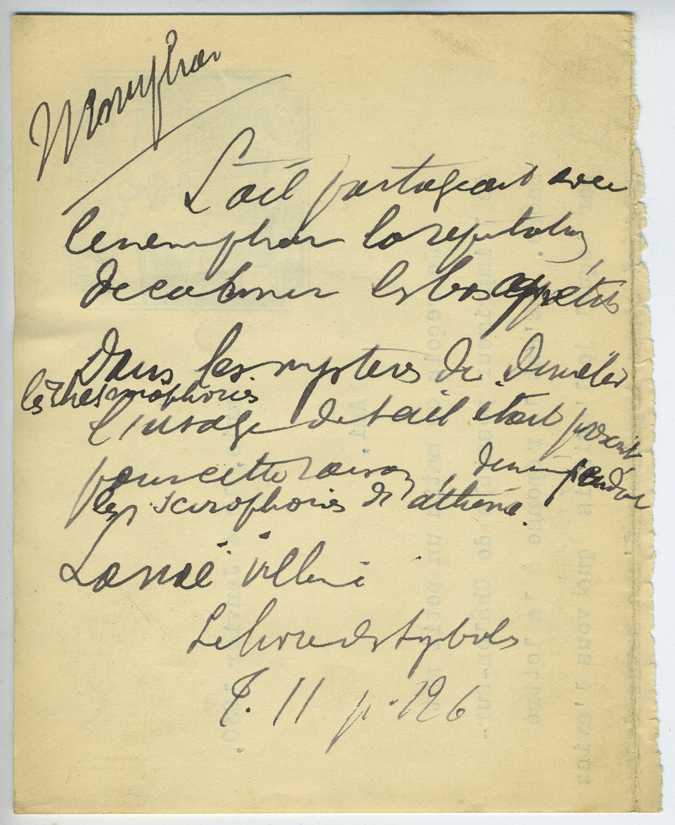 Nenuphar
L'ail partageait avec
le nenuphar la reputation
de calmer les bas appétits
Dans les mysteres de Demeter
les Thesmophories
l'usage de l'ail etait prescrit
pour cette raison, de meme pendant
les scirophories de Athena.
Lanoë Villene
Le livre des symboles
T. II p.